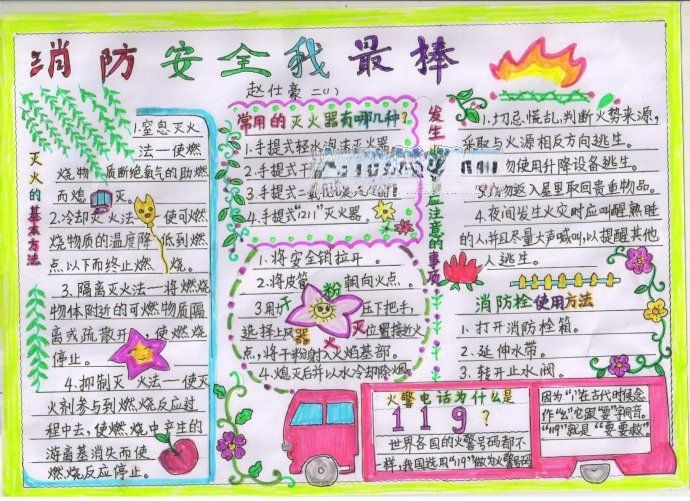 消防安全我最棒
赵仕豪 二(1)
灭火的基本方法
1.窒息灭火
法—使燃
烧物质断绝氧气的助燃
而熄灭。
2.冷却灭火法—使可燃
烧物质的温度降低到燃
点以下而终止燃烧。
3.隔离灭火法—将燃烧
物体附近的可燃物质隔
离或疏散开，使燃烧
停止。
4.抑制灭火法—使灭
火剂参与到燃烧反应过
程中去，使燃烧中产生的
游离基消失而使
燃烧反应停止。
常用的灭火器有哪几种？
1.手提式轻水泡沫灭火器
2.手提式干
3.手提式二
4.手提式"1211"灭火器。
1.将安全销拉开。
2.将皮管朝向火点。
3用力压下把手，
选择上风位置接近火
点，将干粉射入火焰基部。
4.熄灭后并以水冷却除烟。
干粉灭火器
发生
应注意的事项
1.切忌慌乱，判断火势来源，
采取与火源相反方向逃生。
勿使用升降设备逃生。
勿返入屋里取回贵重物品。
4.夜间发生火灾时应叫醒熟睡
的人，并且尽量大声喊叫，以提醒其他
人逃生。
消防栓使用方法
1.打开消防栓箱。
2.延伸水带。
3.转开止水阀。
火警电话为什么是
119？
世界各国的火警号码都不一
样，我国选用"119"做为火警号码
因为"1"在古代时候念
作"幺"它跟"要"字同音。
"119"就是"要要救"。